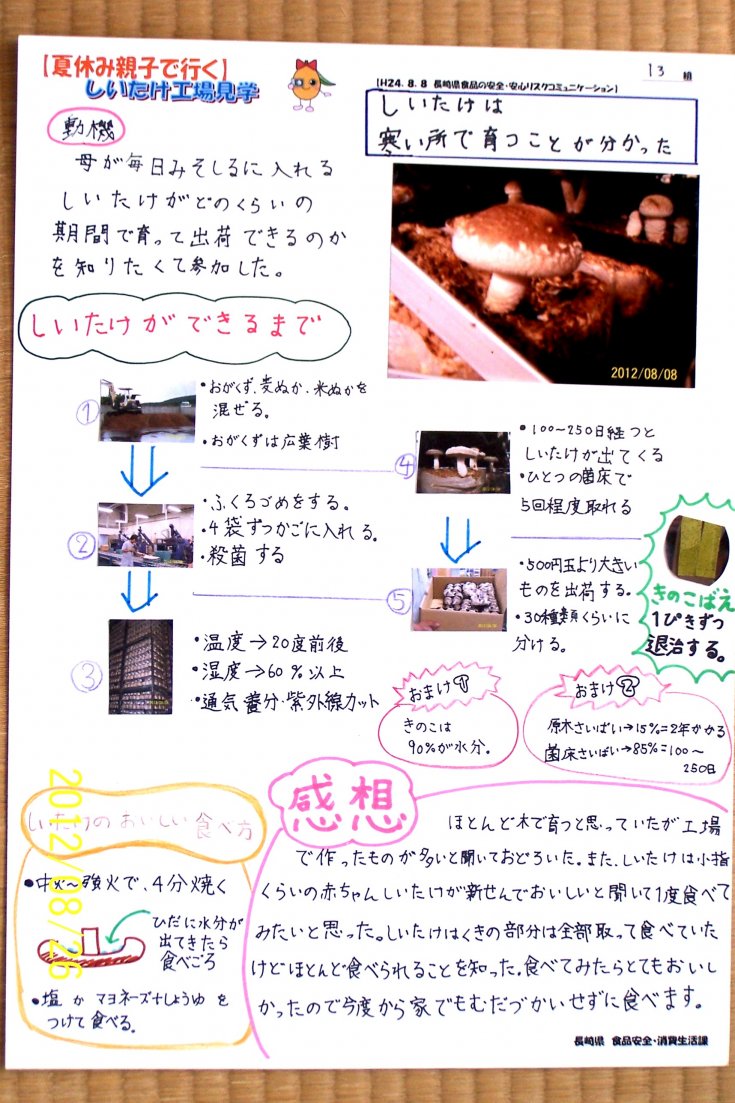 【夏休み親子で行く】
しいたけ工場見学
13 組
【H24.8.8 長崎県食品の安全・安心リスクコミュニケーション】
しいたけは
寒い所で育つことが分かった
動機
母が毎日みそしるに入れる
しいたけがどのくらいの
期間で育って出荷できるのか
を知りたくて参加した。
2012/08/08
しいたけができるまで
①
・おがくず、麦ぬか、米ぬかを
混ぜる。
・おがくずは広葉樹
②
・ふくろづめをする。
・4袋ずつかごに入れる。
・殺菌する
③
・温度→20度前後
・湿度→60%以上
・通気 養分・紫外線カット
④
・100〜250日経つと
しいたけが出てくる
・ひとつの菌床で
5回程度取れる
⑤
・500円玉より大きい
ものを出荷する。
・30種類くらいに
分ける。
きのこばえ
1ぴきずつ
退治する。
おまけ①
きのこは
90%が水分。
おまけ②
原木さいばい→15%=2年かかる
菌床さいばい→85%=100〜
250日
しいたけのおいしい食べ方
・中火〜強火で、4分焼く
ひだに水分が
出てきたら
食べごろ
・塩かマヨネーズ+しょうゆを
つけて食べる。
2012/08/26
感想
ほとんど木で育つと思っていたが工場
で作ったものが多いと聞いておどろいた。また、しいたけは小指
くらいの赤ちゃんしいたけが新せんでおいしいと聞いて1度食べて
みたいと思った。しいたけはくきの部分は全部取って食べていた
けどほとんど食べられることを知った。食べてみたらとてもおいし
かったので今度から家でもむだづかいせずに食べます。
長崎県 食品安全・消費生活課